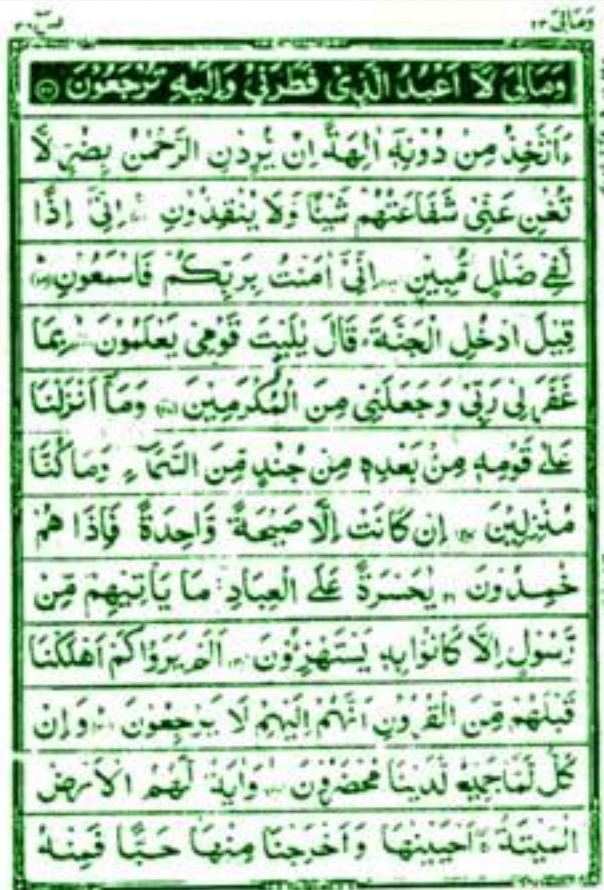 وَمَالِیَ ٢٣
یٰسٓ ٣٦
وَمَالِیَ لَاۤ اَعْبُدُ الَّذِیْ فَطَرَنِیْ وَاِلَیْهِ تُرْجَعُوْنَ ﴿٢٢﴾
ءَاَتَّخِذُ مِنْ دُوْنِهٖۤ اٰلِهَةً اِنْ یُّرِدْنِ الرَّحْمٰنُ بِضُرٍّ لَّا
تُغْنِ عَنِّیْ شَفَاعَتُهُمْ شَیْئًا وَّلَا یُنْقِذُوْنِ اِنِّیْۤ اِذًا
لَّفِیْ ضَلٰلٍ مُّبِیْنٍ اِنِّیْۤ اٰمَنْتُ بِرَبِّكُمْ فَاسْمَعُوْنِ
قِیْلَ ادْخُلِ الْجَنَّةَ قَالَ یٰلَیْتَ قَوْمِیْ یَعْلَمُوْنَ بِمَا
غَفَرَ لِیْ رَبِّیْ وَجَعَلَنِیْ مِنَ الْمُكْرَمِیْنَ وَمَاۤ اَنْزَلْنَا
عَلٰی قَوْمِهٖ مِنْۢ بَعْدِهٖ مِنْ جُنْدٍ مِّنَ السَّمَآءِ وَمَا كُنَّا
مُنْزِلِیْنَ اِنْ كَانَتْ اِلَّا صَیْحَةً وَّاحِدَةً فَاِذَا هُمْ
خٰمِدُوْنَ یٰحَسْرَةً عَلَی الْعِبَادِ مَا یَاْتِیْهِمْ مِّنْ
رَّسُوْلٍ اِلَّا كَانُوْا بِهٖ یَسْتَهْزِءُوْنَ اَلَمْ یَرَوْا كَمْ اَهْلَكْنَا
قَبْلَهُمْ مِّنَ الْقُرُوْنِ اَنَّهُمْ اِلَیْهِمْ لَا یَرْجِعُوْنَ وَاِنْ
كُلٌّ لَّمَّا جَمِیْعٌ لَّدَیْنَا مُحْضَرُوْنَ وَاٰیَةٌ لَّهُمُ الْاَرْضُ
الْمَیْتَةُ اَحْیَیْنٰهَا وَاَخْرَجْنَا مِنْهَا حَبًّا فَمِنْهُ